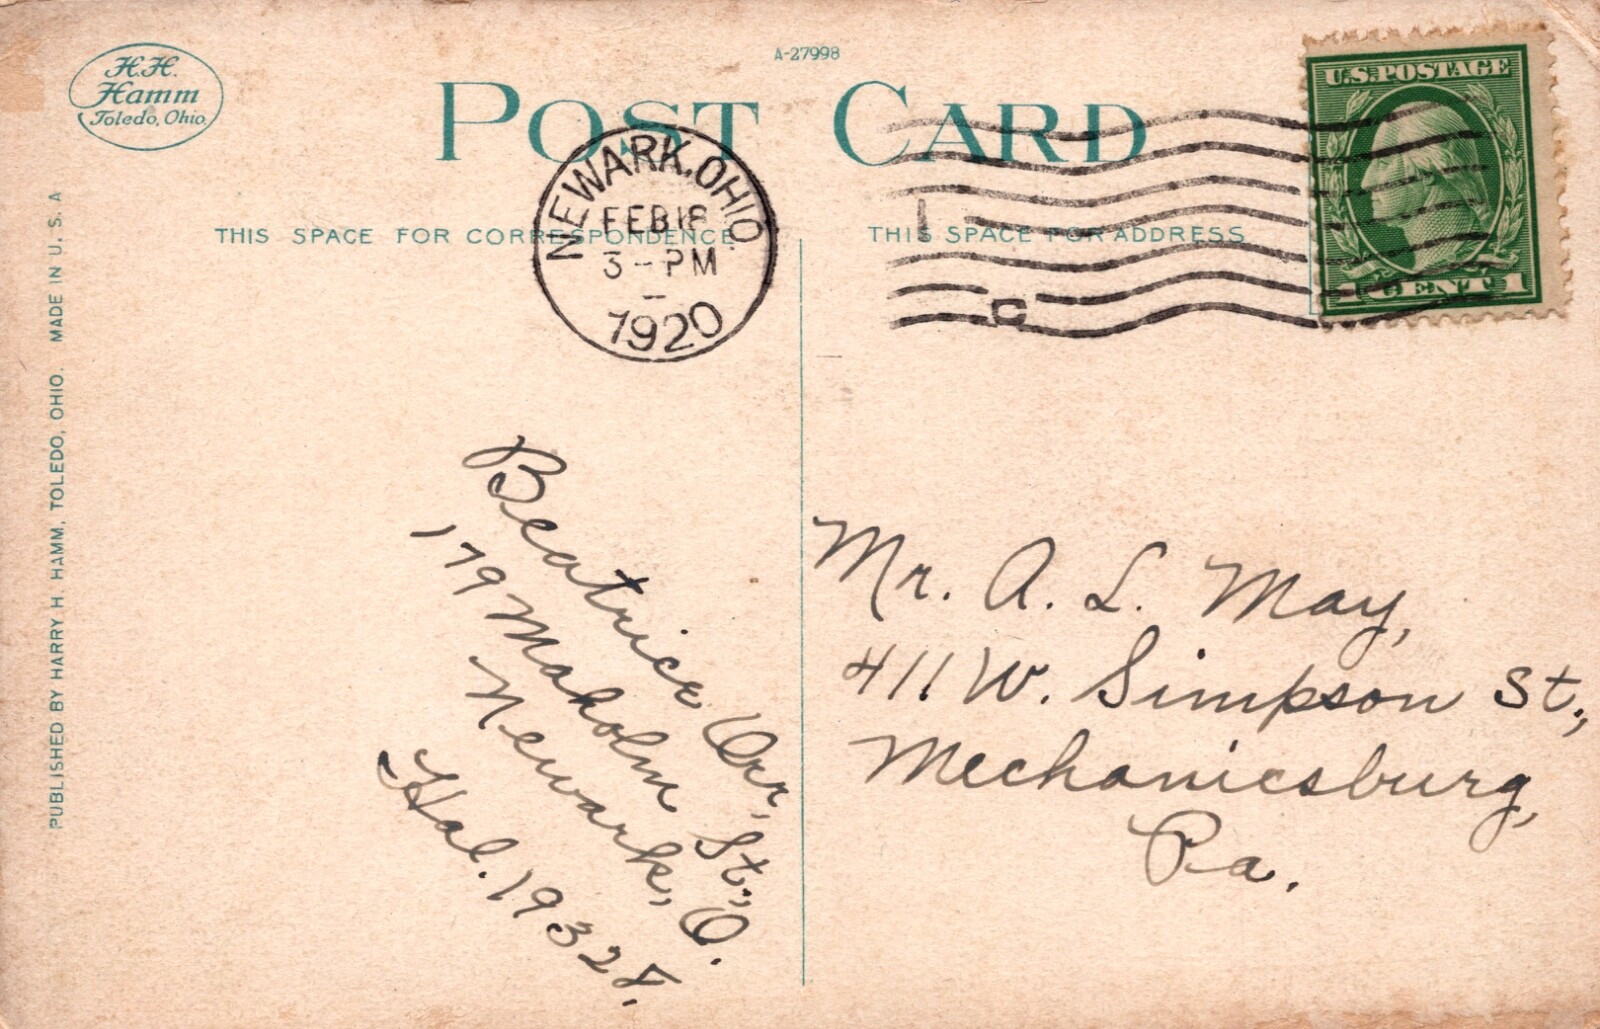 H.H.
Hamm
Toledo, Ohio.
A-27998
POST CARD
U.S. POSTAGE
1 CENT 1
NEWARK, OHIO.
FEB 18
3 - PM
1920
1
C
THIS SPACE FOR CORRESPONDENCE
THIS SPACE FOR ADDRESS
PUBLISHED BY HARRY H HAMM, TOLEDO, OHIO. MADE IN U. S. A
Beatrice Orr,
179 Maholm St.,
Newark, O.
Hal. 1932
Mr. A. L. May,
411 W. Simpson St.,
Mechanicsburg,
Pa.